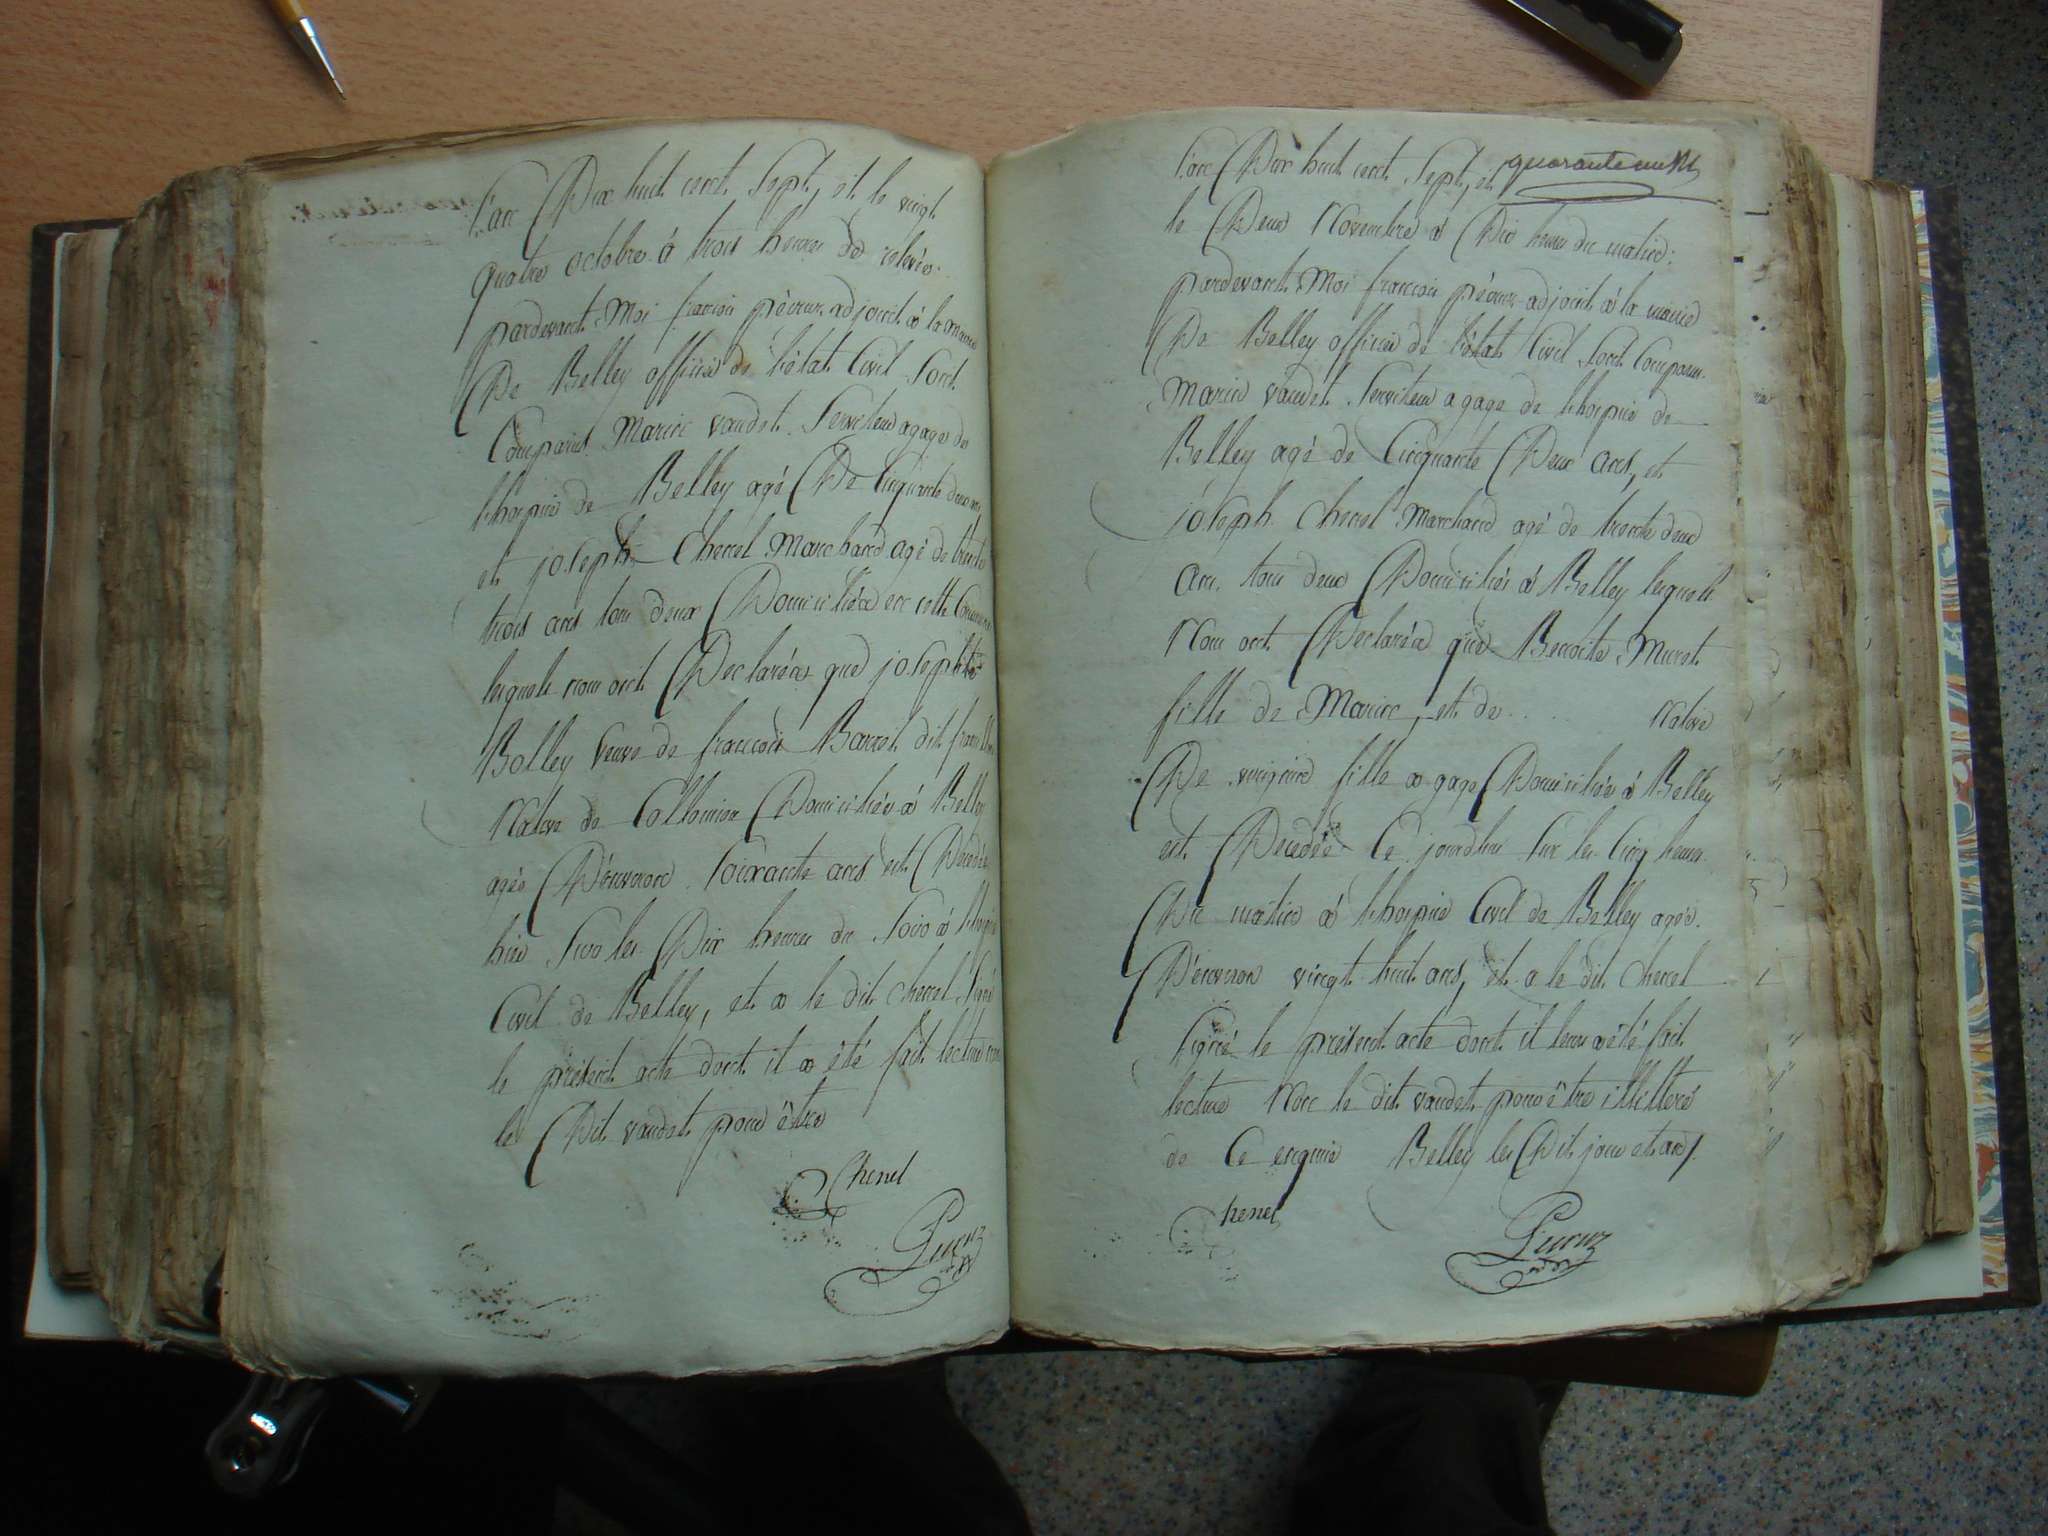 L'an Dix huit cent Sept, et le vingt
quatre octobre à trois heures de relevée.
pardevant Moi françois pévrus adjoint à la mairie
De Belley officier de l'état Civil Sont
Comparus Marin vaudet Serviteur a gage de
l'hospice de Belley agé De Cinquante deux ans
et joseph Chenel Marchand agé de trente
trois ans tous deux Domiciliés en cette Commune
lesquels nous ont Declarés que josephte
Bolley veuve de françois Barret dit
Native de Collomieu Domiciliée à Belley
agée D'environ Soixante ans est Decedée
hier Sur les Dix heures du Soir à l'hospice
Civil de Belley, et a le dit Chenel Signé
le présent acte dont il a été fait lecture non
le Dit vaudet pour être
Chenel
quarante neuf
L'an Dix huit cent Sept, et
le Deux Novembre à Dix heures du matin:
pardevant Moi françois pévrus adjoint à la mairie
De Belley officier de l'état Civil Sont Comparus
Marin vaudet Serviteur a gage de l'hospice de
Belley agé de Cinquante Deux ans, et
joseph Chenel Marchand agé de trente deux
ans tous deux Domiciliés à Belley lesquels
Nous ont Declarés que Benoite Muret
fille de Marin, et de ... Native
De fille a gage Domiciliée à Belley
est Decedée Ce jourdhui Sur les Cinq heures
Du matin à l'hospice Civil de Belley agée
D'environ vingt huit ans, et a le dit Chenel
Signé le présent acte dont il leur a été fait
lecture Non le dit vaudet pour être illitteré
de Ce enquis Belley les Dit jour et an
Chenel